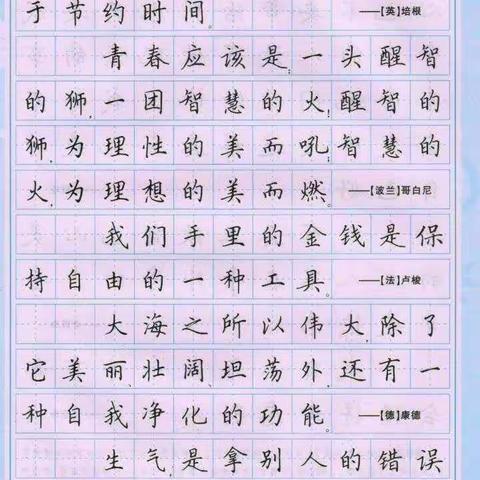 于节约时间。 ——【英】培根
青春应该是:一头醒智
的狮,一团智慧的火!醒智的
狮,为理性的美而吼;智慧的
火,为理想的美而燃。 ——【波兰】哥白尼
我们手里的金钱是保
持自由的一种工具。 ——【法】卢梭
大海之所以伟大,除了
它美丽、壮阔、坦荡外,还有一
种自我净化的功能。 ——【德】康德
生气,是拿别人的错误